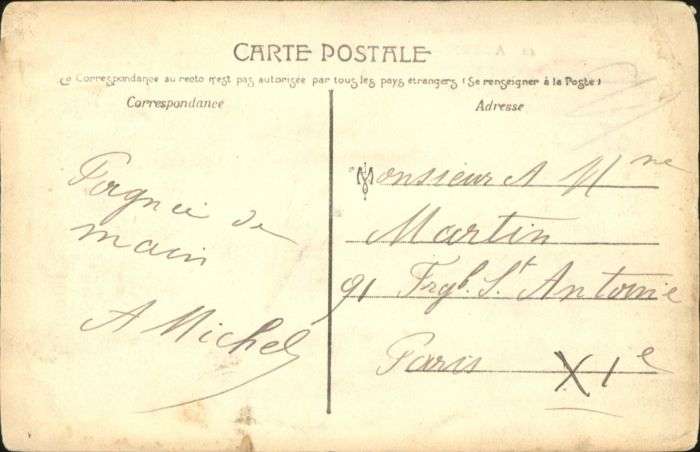 CARTE POSTALE
La Correspondance au recto n'est pas autorisée par tous les pays étrangers (Se renseigner à la Poste)
Correspondance
Adresse
Poignée de
main
A Michel
Monsieur et Mme
Martin
91 Fbg. St Antoine
Paris XIe